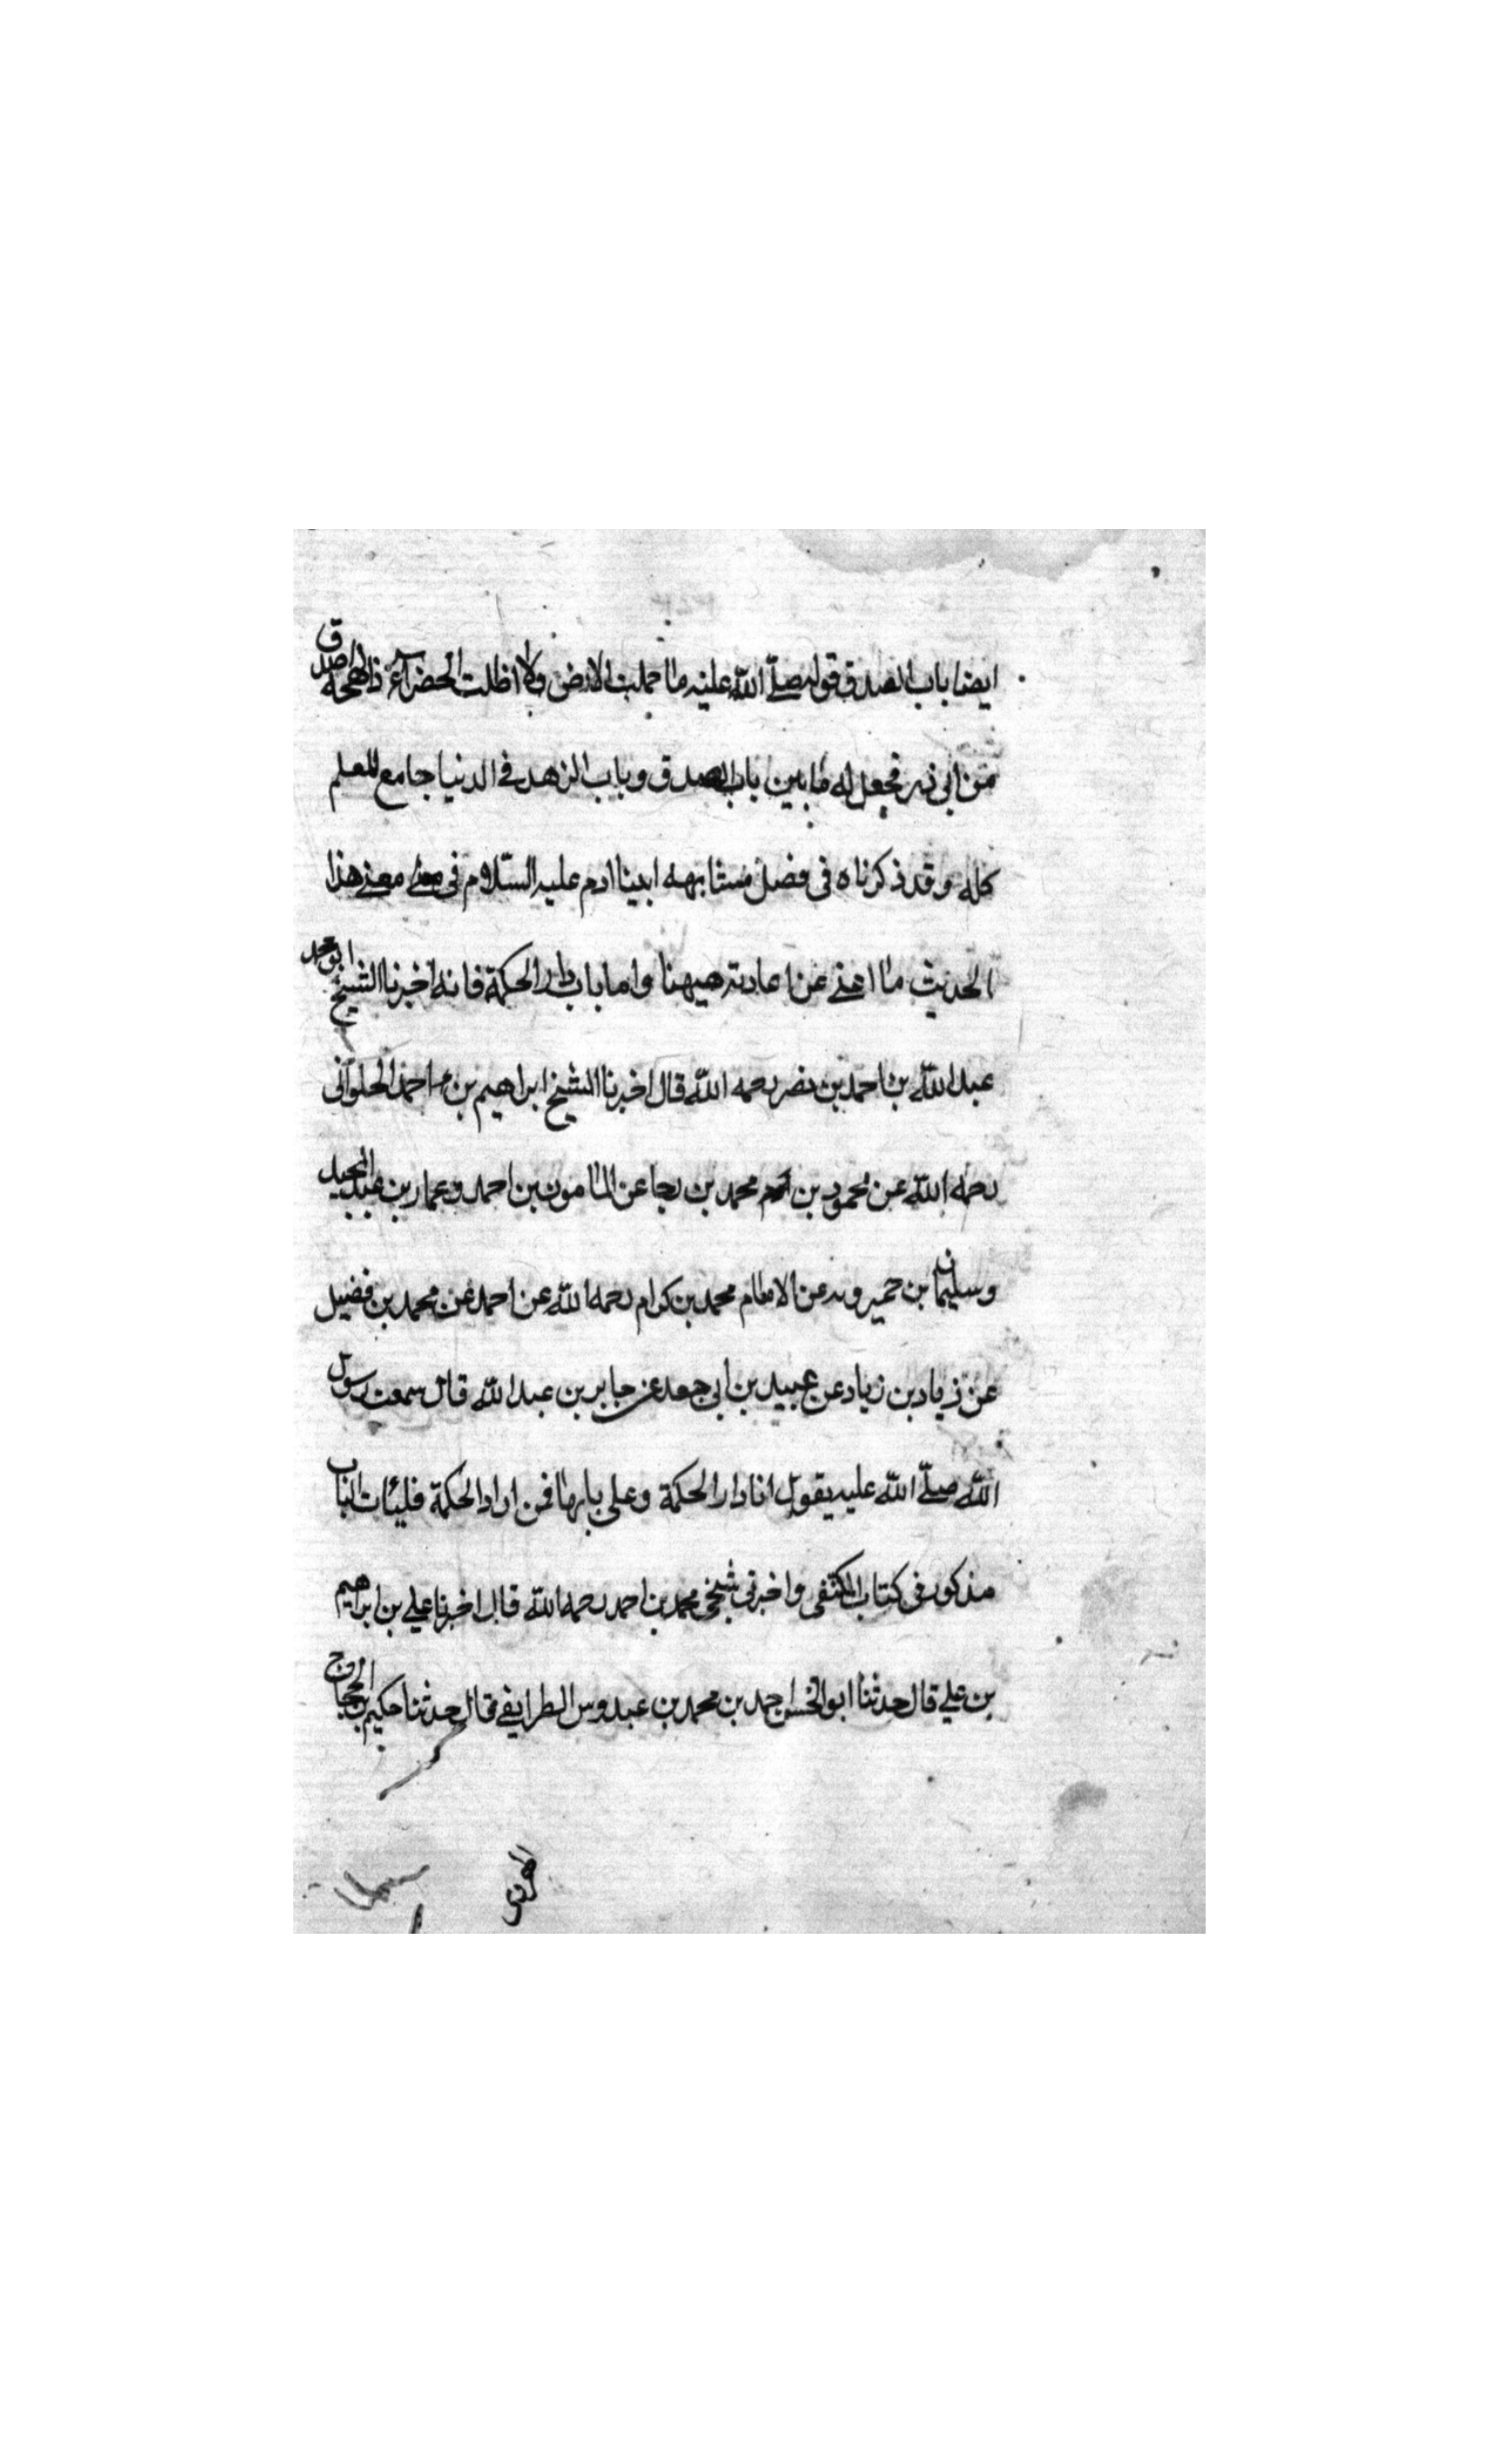 ايضا باب الصدق قوله صلّى اللّه عليه ما حملت الارض ولا اظلت الخضراء ذا لهجة اصدق
من ابى ذر فجعل له ما بين باب الصدق وباب الزهد فى الدنيا جامع للعلم
كله وقد ذكرناه فى فصل مشابهه ابينا ادم عليه السّلام فى معنى معنى هذا
الحديث ما اغنى عن اعادته هيهنا واما باب دار الحكمة فانه اخبرنا الشيخ ابو محمد
عبد اللّه بن احمد بن نصر رحمه اللّه قال اخبرنا الشيخ ابراهيم بن احمد الحلوانى
رحمه اللّه عن محمود بن محمد بن رجا عن المامون بن احمد وعمار بن عبد المجيد
وسليمان بن حميرويه عن الامام محمد بن كرام رحمه اللّه عن احمد عن محمد بن فضيل
عن زياد بن زياد عن عبيد بن ابى جعد عن جابر بن عبد اللّه قال سمعت رسول
اللّه صلّى اللّه عليه يقول انا دار الحكمة وعلى بابها فمن اراد الحكمة فليات الباب
مذكور فى كتاب المكتفى واخبرنى شيخى محمد بن احمد رحمه اللّه قال اخبرنا على بن ابراهيم
بن على قال حدثنا ابو الحسن احمد بن محمد بن عبدوس الطرايفى قال حدثنا حكيم بن الحجاج